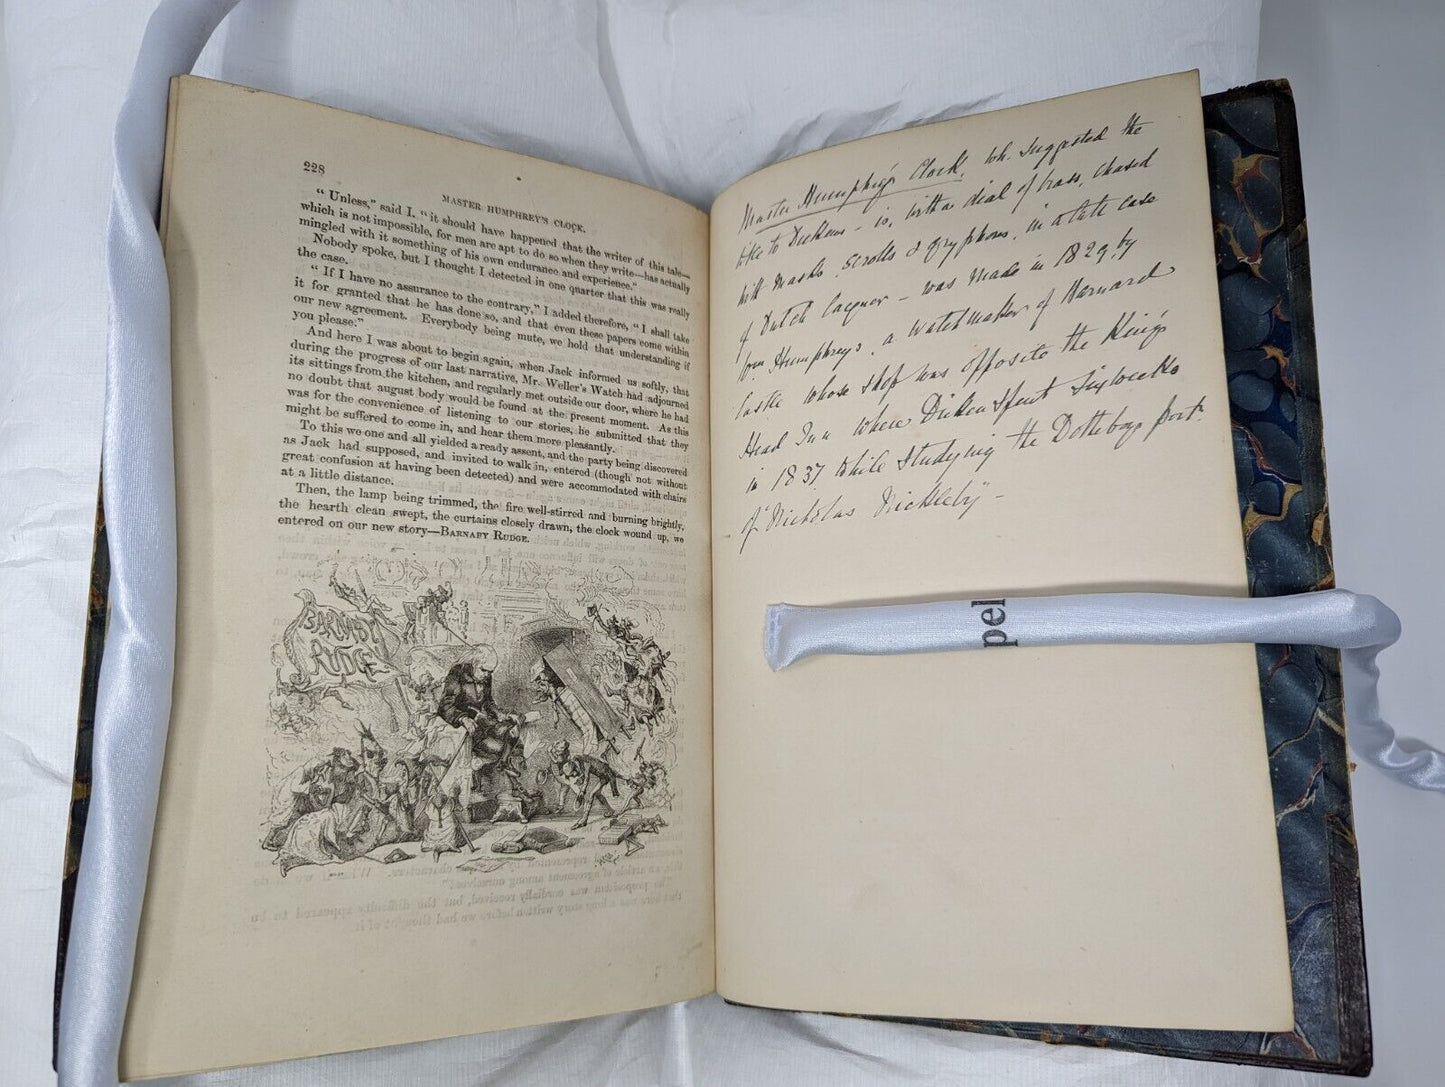 228
MASTER HUMPHREY'S CLOCK.
"Unless," said I, "it should have happened that the writer of this tale—
which is not impossible, for men are apt to do so when they write—has actually
mingled with it something of his own endurance and experience."
Nobody spoke, but I thought I detected in one quarter that this was really
the case.
"If I have no assurance to the contrary," I added therefore, "I shall take
it for granted that he has done so, and that even these papers come within
our new agreement. Everybody being mute, we hold that understanding if
you please."
And here I was about to begin again, when Jack informed us softly, that
during the progress of our last narrative, Mr. Weller's Watch had adjourned
its sittings from the kitchen, and regularly met outside our door, where he had
no doubt that august body would be found at the present moment. As this
was for the convenience of listening to our stories, he submitted that they
might be suffered to come in, and hear them more pleasantly.
To this we one and all yielded a ready assent, and the party being discovered
as Jack had supposed, and invited to walk in, entered (though not without
great confusion at having been detected) and were accommodated with chairs
at a little distance.
Then, the lamp being trimmed, the fire well-stirred and burning brightly,
the hearth clean swept, the curtains closely drawn, the clock wound up, we
entered on our new story—BARNABY RUDGE.
BARNABY
RUDGE
Master Humphrey's Clock, wh. suggested the
title to Dickens – is, with a dial of brass, chased
with masks, scrolls & gryphons, in a tall case
of Dutch lacquer – was made in 1829, by
Wm. Humphreys, a watchmaker of Barnard
Castle whose shop was opposite the King's
Head Inn where Dickens spent six weeks
in 1837 while studying the Dotheboys part
of "Nicholas Nickleby" –
pel